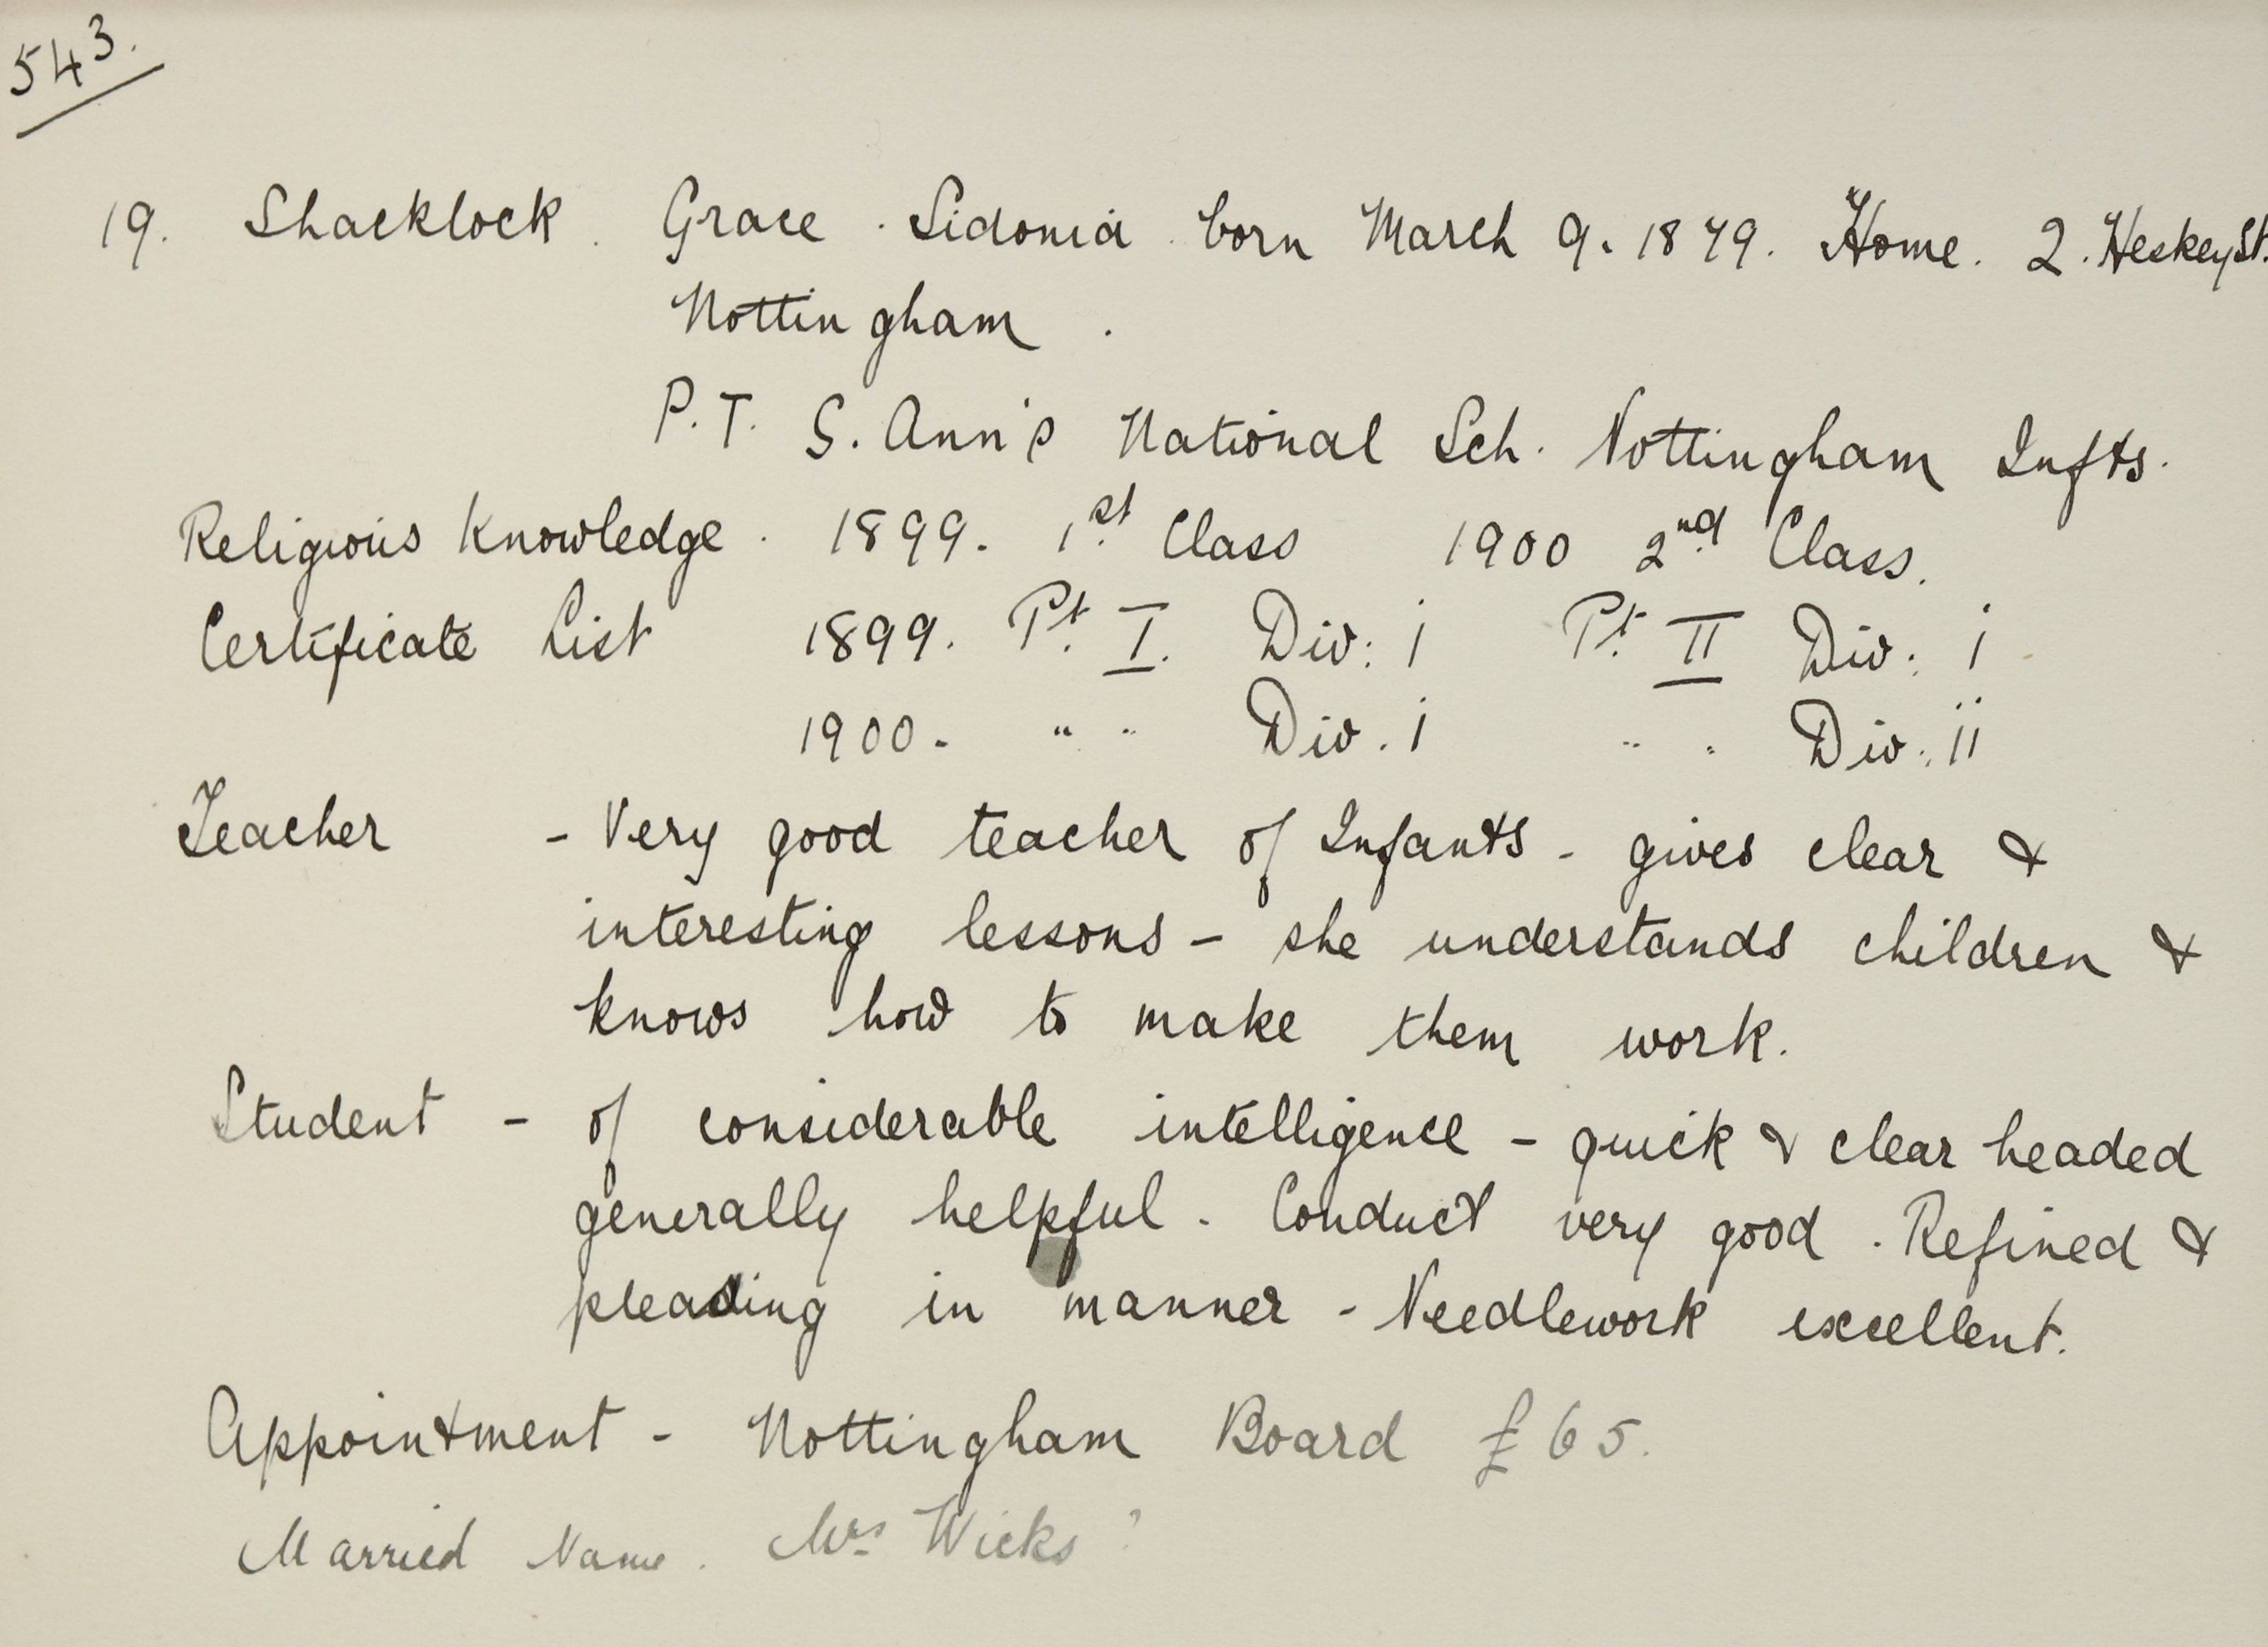 543.
19. Shacklock. Grace. Sidonia. born March 9. 1879. Home. 2. Heskey St.
Nottingham.
P.T. S. Ann's National Sch. Nottingham Infts.
Religious Knowledge. 1899. 1st Class 1900 2nd Class.
Certificate List 1899. Pt. I. Div: i Pt. II Div: i
1900. " " Div. i " " Div: ii
Teacher - Very good teacher of Infants - gives clear &
interesting lessons - she understands children &
knows how to make them work.
Student - of considerable intelligence - quick & clear headed
generally helpful. Conduct very good. Refined &
pleasing in manner - Needlework excellent.
Appointment - Nottingham Board £65.
Married Name. Mrs Wicks?